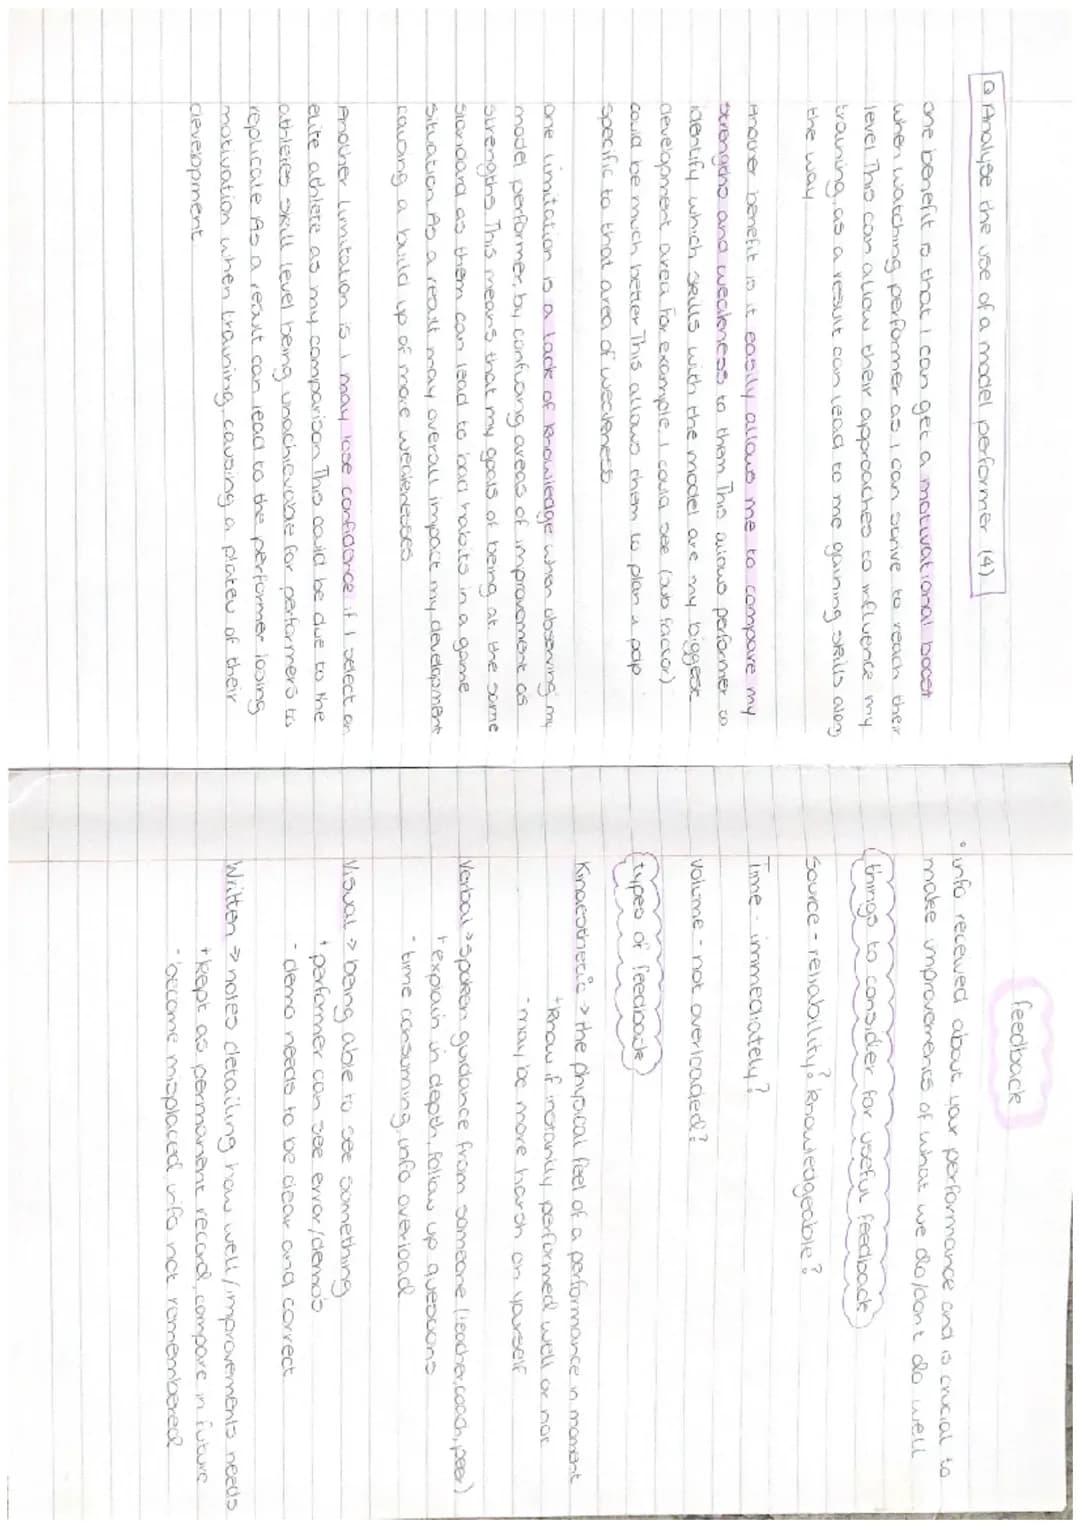 Q Analyse the use of a model performer (4)
one benefit is that I can get a motivational boost
when watching performer as I can strive to reach their
level. This can allow their approaches to influence my
training, as a result can lead to me gaining skills along
the way
Another benefit is it easily allows me to compare my
strengths and weakness to them. This allows performer to
identify which skills with the model are my biggest
development area. For example, I could see (sub factor)
could be much better. This allows them to plan a pdp
specific to that area of weakness
One limitation is a lack of knowledge when observing my
model performer, by confusing areas of improvement as
strengths. This means that my goals of being at the same
standard as them can lead to bad habits in a game
situation. As a result may overall impact my development
causing a build up of more weaknesses
Another limitation is I may lose confidence if I select an
elite athlete as my comparison. This could be due to the
athletes skill level being unachievable for performers to
replicate. As a result can lead to the performer losing
motivation when training, causing a plateu of their
development
feedback
• info received about your performance and is crucial to
make improvements of what we do/don't do well
things to consider for useful feedback
Source - reliability? knowledgeable?
Time - immediately?
Volume - not overloaded?
types of feedback
Kinaesthetic → the physical feel of a performance in moment
+ know if instantly performed well or not
- may be more harsh on yourself
Verbal → spoken guidance from someone (teacher, coach, peer)
+ explain in depth, follow up questions
- time consuming, info overload
Visual → being able to see something
+ performer can see error/demo's
- demo needs to be clear and correct
Written → notes detailing how well/improvements needs
+ kept as permanent record, compare in future
- become misplaced, info not remembered